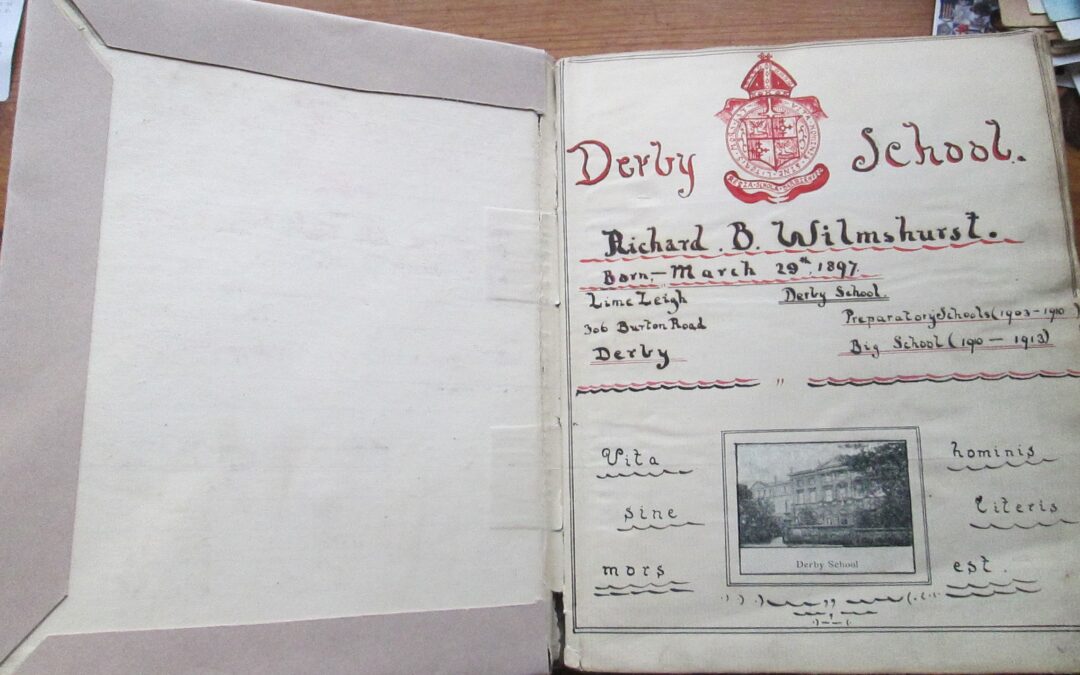 Derby School.
REGIA · SCHOLA · DERBIENSIS
Richard . B. Wilmshurst.
Born,— March 29th, 1897.
Lime Leigh
306 Burton Road
Derby
Derby School.
Preparatory Schools (1903 – 1910)
Big School (1910 — 1913)
Vita hominis
sine literis
mors est.
Derby School